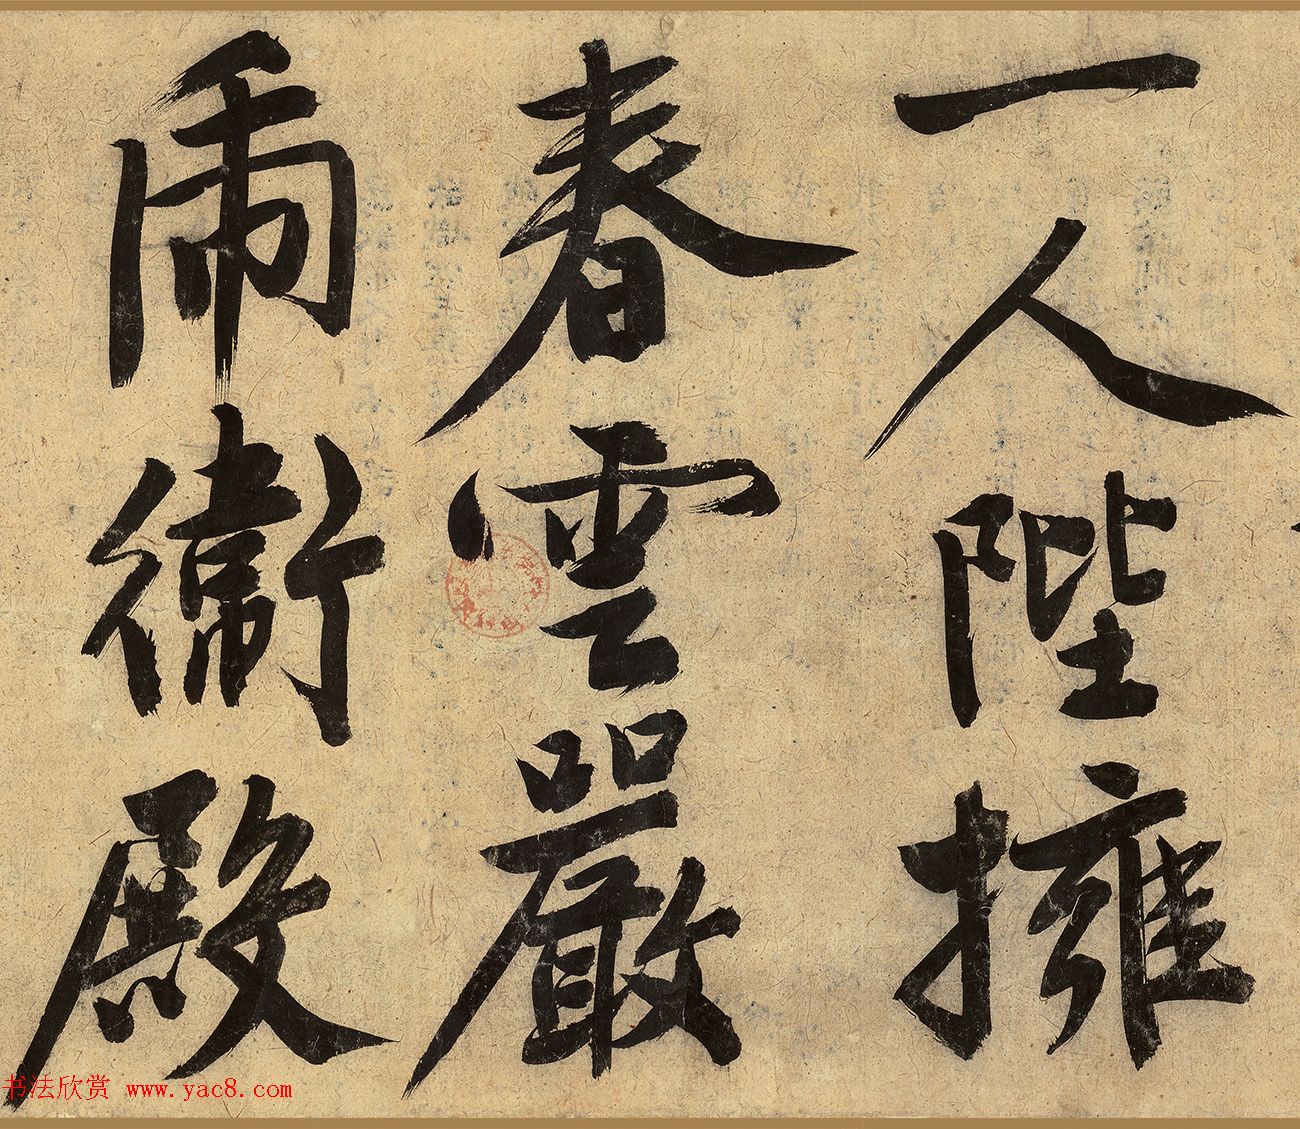 一人陛擁
春雲嚴
衛殿
书法欣赏 www.yac8.com